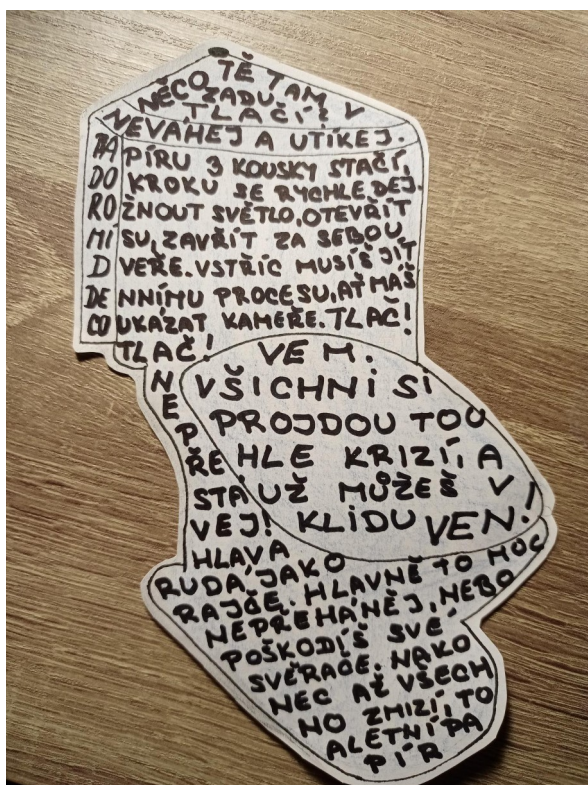 TĚ TAM V
NĚCO ZADU
TLAČÍ?
NEVÁHEJ A UTÍKEJ.
PA PÍRU 3 KOUSKY STAČÍ,
DO KROKU SE RYCHLE DEJ.
RO ŽNOUT SVĚTLO, OTEVŘÍT
MÍ SU, ZAVŘÍT ZA SEBOU
D VEŘE. VSTŘÍC MUSÍŠ JÍT
DE NNÍMU PROCESU, AŤ MÁŠ
CO UKÁZAT KAMEŘE. TLAČ!
TLAČ! VEM.
NEPŘESTÁVEJ! VŠICHNI SI
PROJDOU TOU
HLE KRIZÍ, A
UŽ MŮŽEŠ V
KLIDU VEN!
HLAVA
RUDÁ, JAKO
RAJČE. HLAVNĚ TO MOC
NEPŘEHÁNĚJ, NEBO
POŠKODÍŠ SVÉ
SVĚRAČE. NAKO
NEC AŽ VŠECH
NO ZMIZÍ, TO
ALETNÍ PA
PÍR